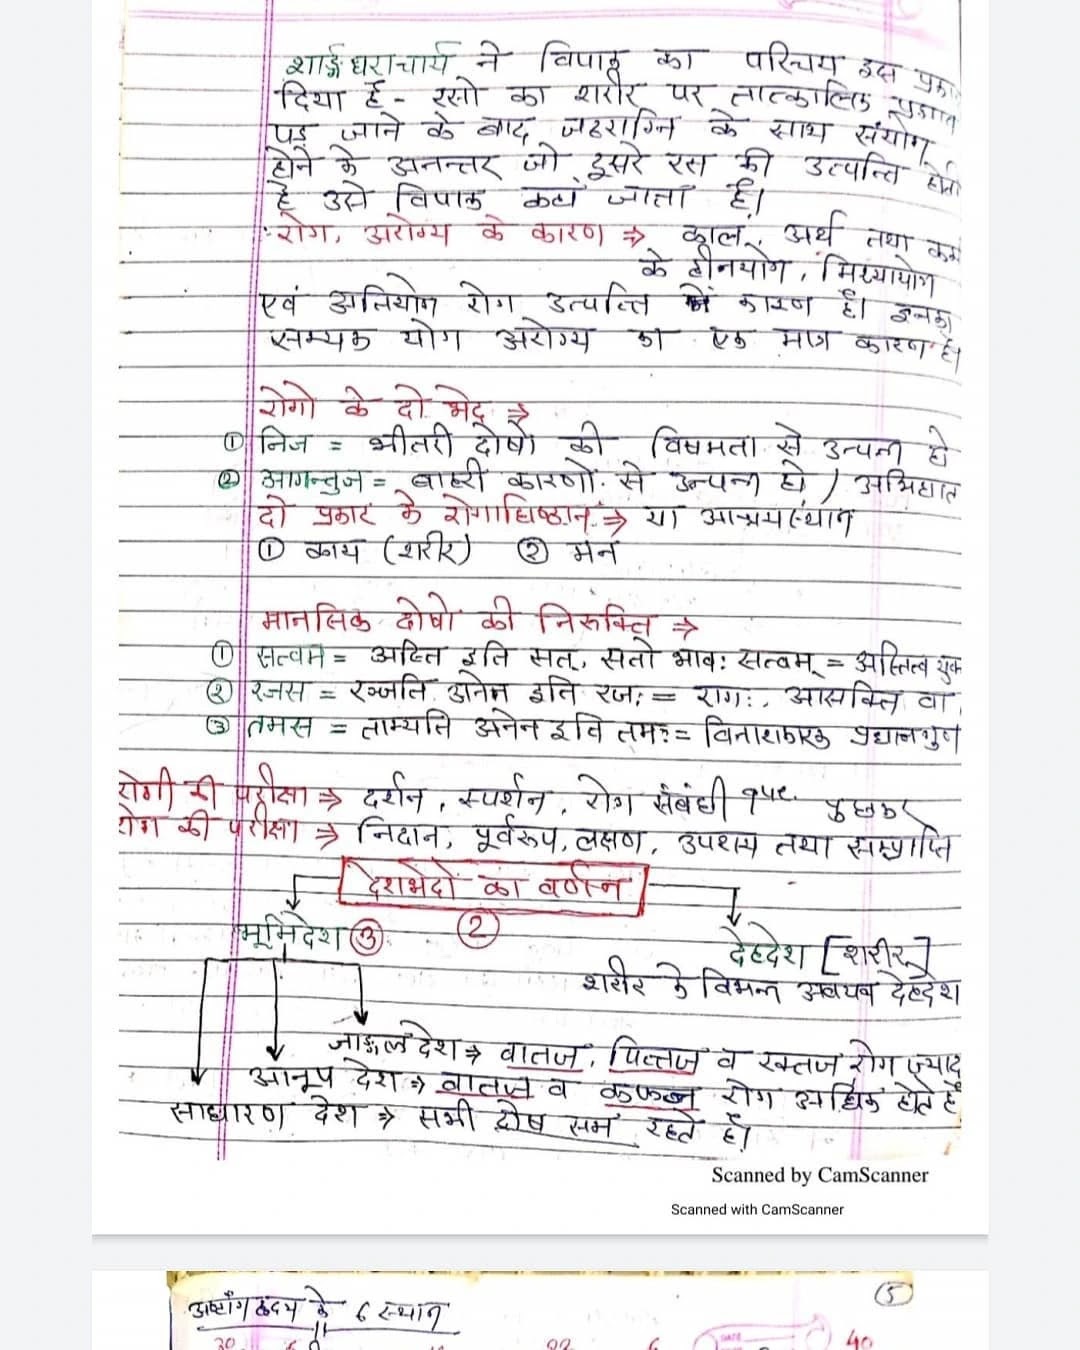 शार्ङ्गधराचार्य ने विपाक का परिचय इस प्रकार
दिया है - रसो का शरीर पर तात्कालिक प्रभाव
पड़ जाने के बाद जठराग्नि के साथ संयोग
होने के अनन्तर जो दूसरे रस की उत्पत्ति होती
है उसे विपाक कहा जाता है।
रोग, अरोग्य के कारण ⇒ काल, अर्थ तथा कर्म
के हीनयोग, मिथ्यायोग
एवं अतियोग रोग उत्पत्ति के कारण है। इनका
सम्यक योग अरोग्य का एक मात्र कारण है।
रोगो के दो भेद ⇒
① निज = भीतरी दोषो की विषमता से उत्पन्न हो
② आगन्तुज = बाहरी कारणों से उत्पन्न हो / अभिघात
दो प्रकार के रोगाधिष्ठान ⇒ या आश्रयस्थान
① काय (शरीर) ② मन
मानसिक दोषो की निरुक्ति ⇒
① सत्वम = अस्ति इति सत्, सतो भावः सत्वम् = अस्तित्व युक्त
② रजस = रञ्जति अनेन इति रजः = रागः, आसक्ति वा
③ तमस = ताम्यति अनेन इति तमः = विनाशकारक प्रधानगुण
रोगी की परीक्षा ⇒ दर्शन, स्पर्शन, रोग संबंधी पुछकर
रोग की परीक्षा ⇒ निदान, पूर्वरूप, लक्षण, उपशय तथा सम्प्राप्ति
देशभेदों का वर्णन
②
भूमिदेश ③ देहदेश [शरीर]
शरीर के विभिन्न अवयव देहदेश
जाङ्गल देश ⇒ वातज, पित्तज व रक्तज रोग ज्याद
आनूप देश ⇒ वातज व कफज रोग अधिक होते है
साधारण देश ⇒ सभी दोष सम रहते है।
Scanned by CamScanner
Scanned with CamScanner
⑤
अष्टांग हृदय के 6 स्थान
30 40